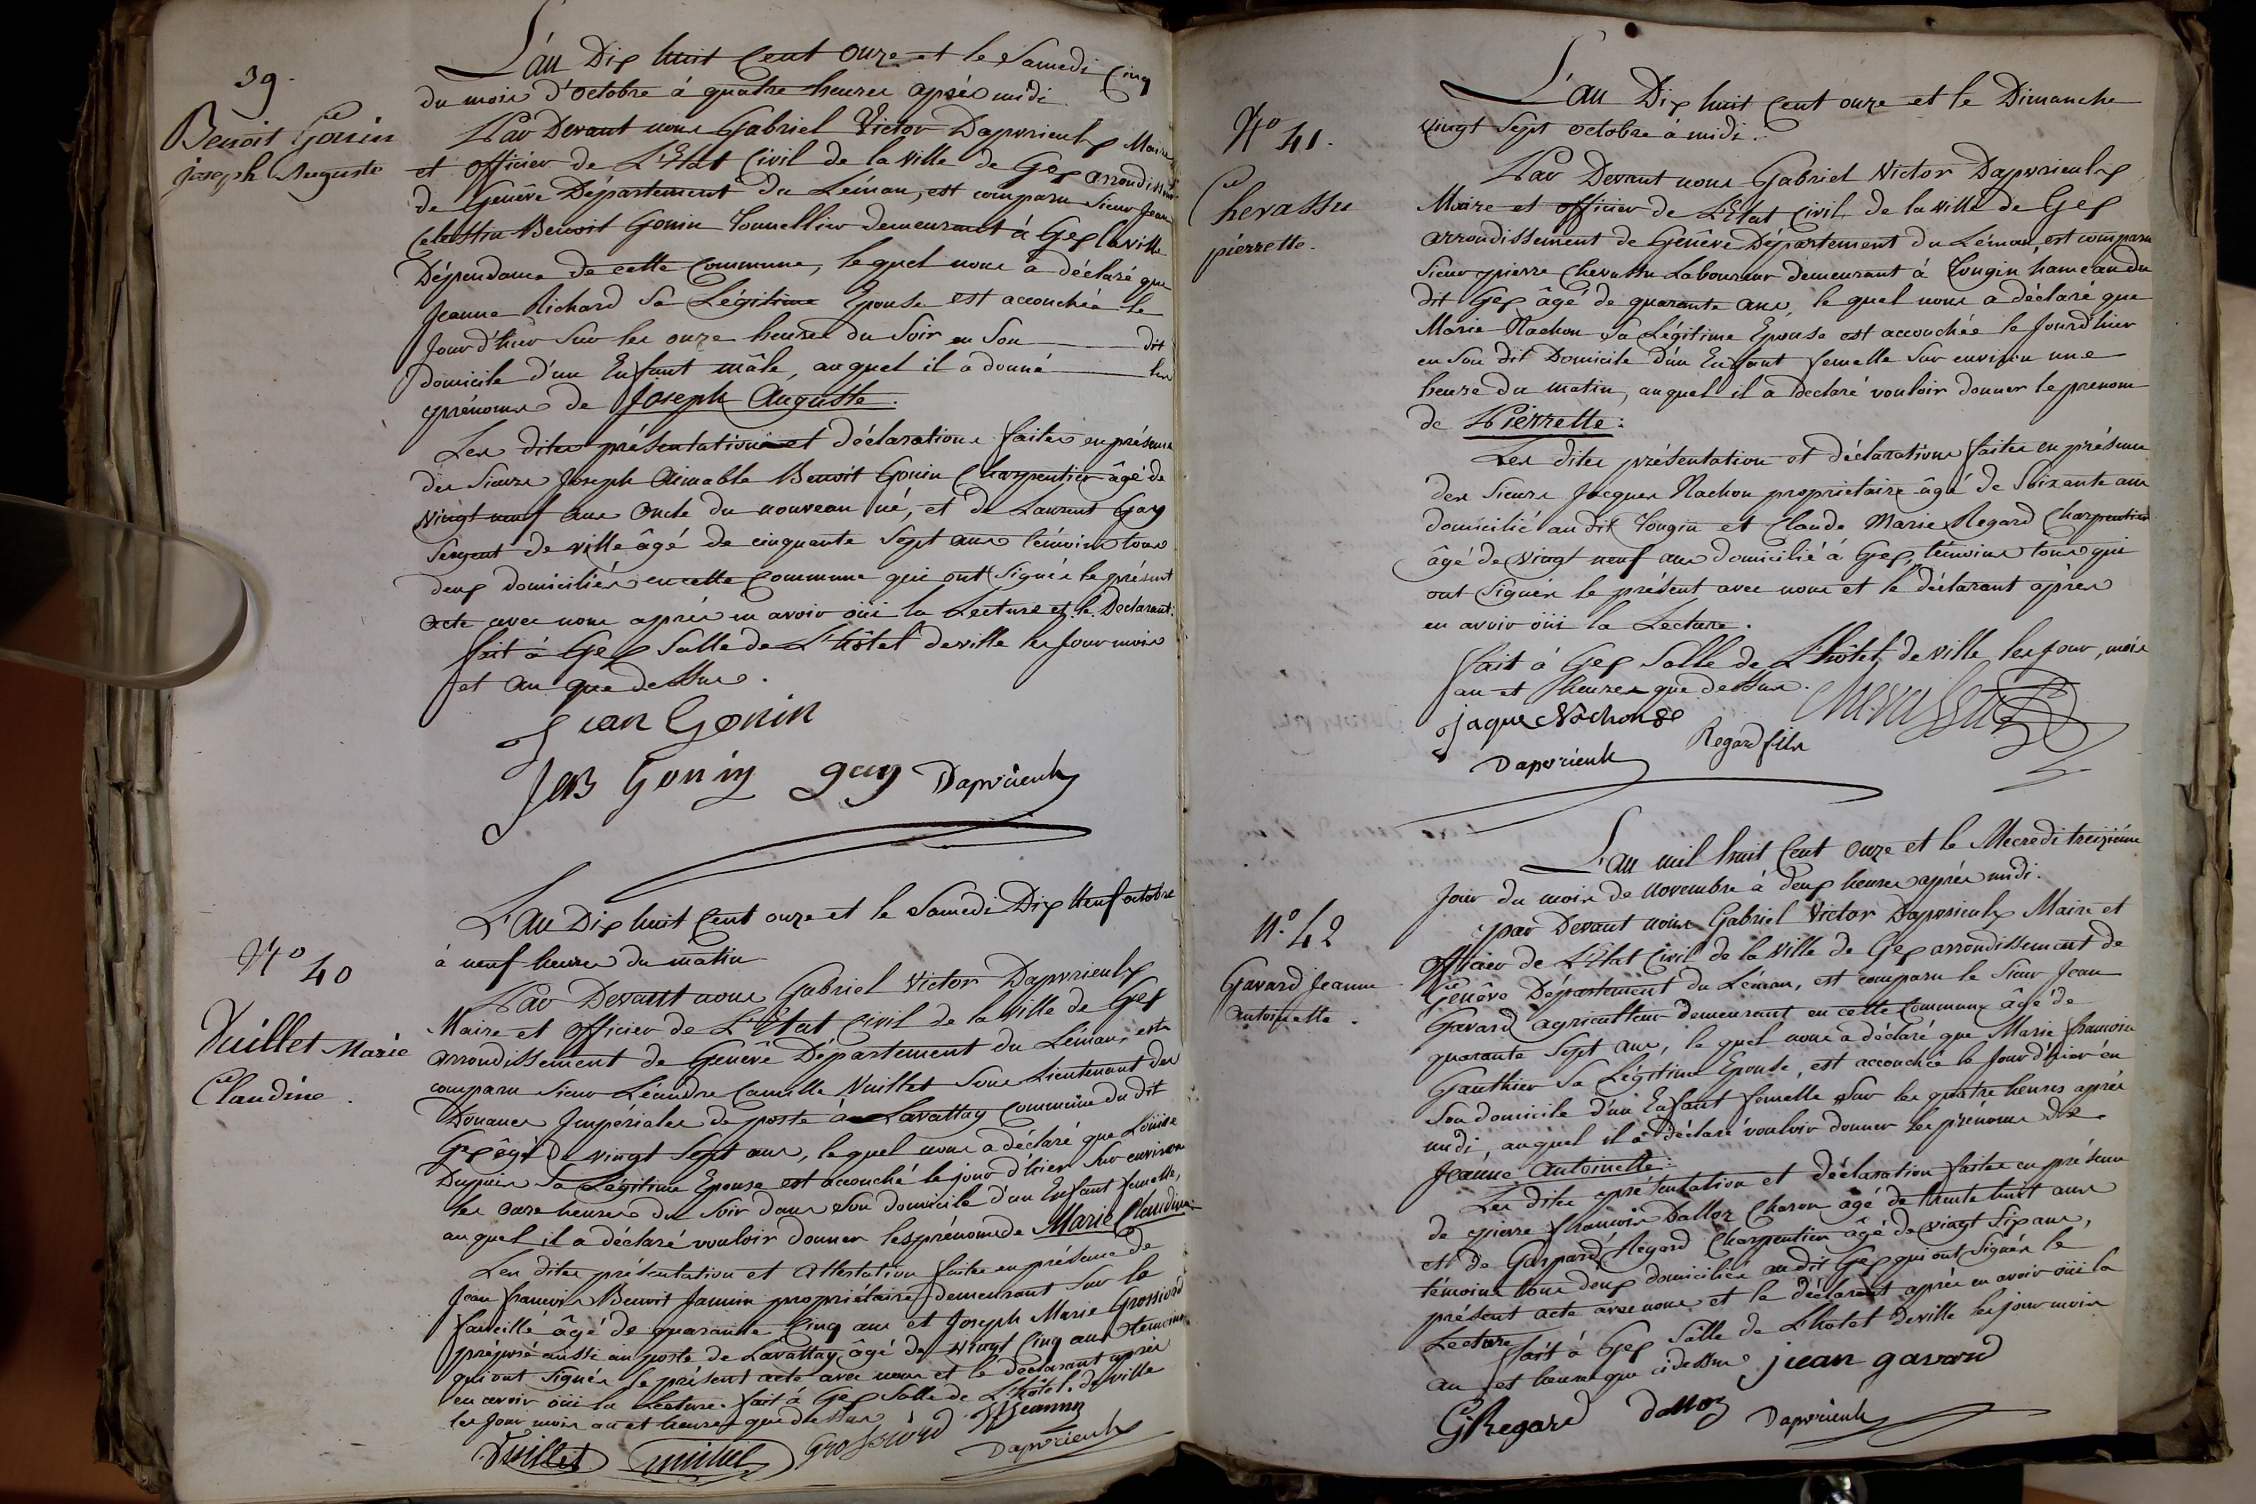 39.
Benoit Gonin
joseph Auguste
L'an Dix huit Cent Onze et le Samedi Cinq
du mois d'Octobre à quatre heures après midi
Par Devant nous Gabriel Victor Maire
et officier de L'Etat Civil de la ville de Gex arrondissemt
de Genève Département du Léman, est comparu Sieur Jean
Celestin Benoit Gonin Tonnellier demeurant à Gex la ville
Dépendance de cette Commune, lequel nous a déclaré que
Jeanne Richard Sa Légitime Epouse est accouchée le
jour d'hier Sur les onze heures du Soir en Son dit
domicile d'un Enfant mâle, auquel il a donné les
prénoms de Joseph Auguste.
Les dites présentations et déclarations faites en présence
des Sieurs Joseph Aimable Benoit Gonin Charpentier âgé de
Vingt neuf ans Oncle du nouveau né, et de Laurent Gay
Sergent de ville âgé de cinquante Sept ans témoins tous
deux domiciliés en cette Commune qui ont Signés le présent
acte avec nous après en avoir oüi la Lecture et le Declarant.
fait à Gex Salle de L'hôtel de ville les jour mois
et an que dessus.
jean Gonin
Gonin gay
N° 40
Vuillet Marie
Claudine.
L'an Dix huit Cent onze et le Samedi Dix Neuf octobre
à neuf heures du matin
Par Devant nous Gabriel Victor
Maire et officier de L'Etat Civil de la ville de Gex
arrondissement de Genêve Département du Léman, est
comparu Sieur Léandre Camille Vuillet Sous Lieutenant des
Douanes Impériales de poste à Lavattay Commune du dit
Gex âgé de vingt Sept ans, lequel nous a déclaré que Loüise
Dupuis Sa Légitime Epouse est accouché le jour d'hier Sur environ
les onze heures du Soir dans Son domicile d'un Enfant femelle,
auquel il a déclaré vouloir donner les prénoms de Marie Claudine
Les dites présentation et Attestation faites en présence de
Jean françois Benoit Jannin propriétaire demeurant Sur la
faucille âgé de quarante Cinq ans et Joseph Marie Grossiord
préposé aussi au poste de Lavattay âgé de Vingt Cinq ans témoins
qui ont Signés le présent acte avec nous et le déclarant après
en avoir oüi la Lecture. fait à Gex Salle de L'hôtel de ville
les jour mois an et heures que dessus
Vuillet Grossiord Jeannin
N° 41.
Chevassu
pierrette.
L'an Dix huit Cent onze et le Dimanche
vingt Sept octobre à midi.
Par Devant nous Gabriel Victor
Maire et officier de L'Etat Civil de la ville de Gex
arrondissement de Genêve Département du Léman, est comparu
Sieur pierre Chevassu Laboureur demeurant à Tougin hameau du
dit Gex âgé de quarante ans, le quel nous a déclaré que
Marie Nachon Sa Légitime Epouse est accouchée le Jourd'hier
en Son dit Domicile d'un Enfant femelle Sur environ une
heure du matin, auquel il a déclaré vouloir donner le prenom
de Pierrette.
Les dites présentation et déclarations faites en présence
des Sieurs Jacques Nachon proprietaire âgé de Soixante ans
domicilié au dit Tougin et Claude Marie Regard Charpentier
âgé de Vingt neuf ans domicilié à Gex, témoins tous qui
ont Signés le présent avec nous et le déclarant après
en avoir oüi la Lecture.
fait à Gex Salle de L'hôtel de ville les jour, mois
an et heures que dessus. Chevassu
jaque Nachon
Regard fils
N° 42
Gavard Jeanne
antoinette.
L'an mil huit Cent Onze et le Mecredi treizième
jour du mois de novembre à deux heures après midi.
par Devant nous Gabriel Victor Maire et
officier de L'Etat Civil de la Ville de Gex arrondissement de
Genêve Département du Léman, est comparu le Sieur Jean
Gavard agriculteur demeurant en cette Commune âgé de
quarante Sept ans, le quel nous a déclaré que Marie françoise
Gauthier Sa Légitime Epouse, est accouchée le jour d'hier en
Son domicile d'un Enfant femelle Sur les quatre heures après
midi, auquel il a déclaré vouloir donner les prénoms de
Jeanne Antoinette.
Les dites présentation et déclaration faites en présence
de pierre françois Dalloz Charon âgé de trente huit ans
et de Gaspard Regard Charpentier âgé de vingt Six ans,
témoins tous deux domiciliés au dit Gex qui ont Signés le
présent acte avec nous et le déclarant après en avoir oüi la
Lecture. fait à Gex Salle de L'hotel de ville les jour mois
an et heures que cidessus jean gavard
G Regard Dalloz